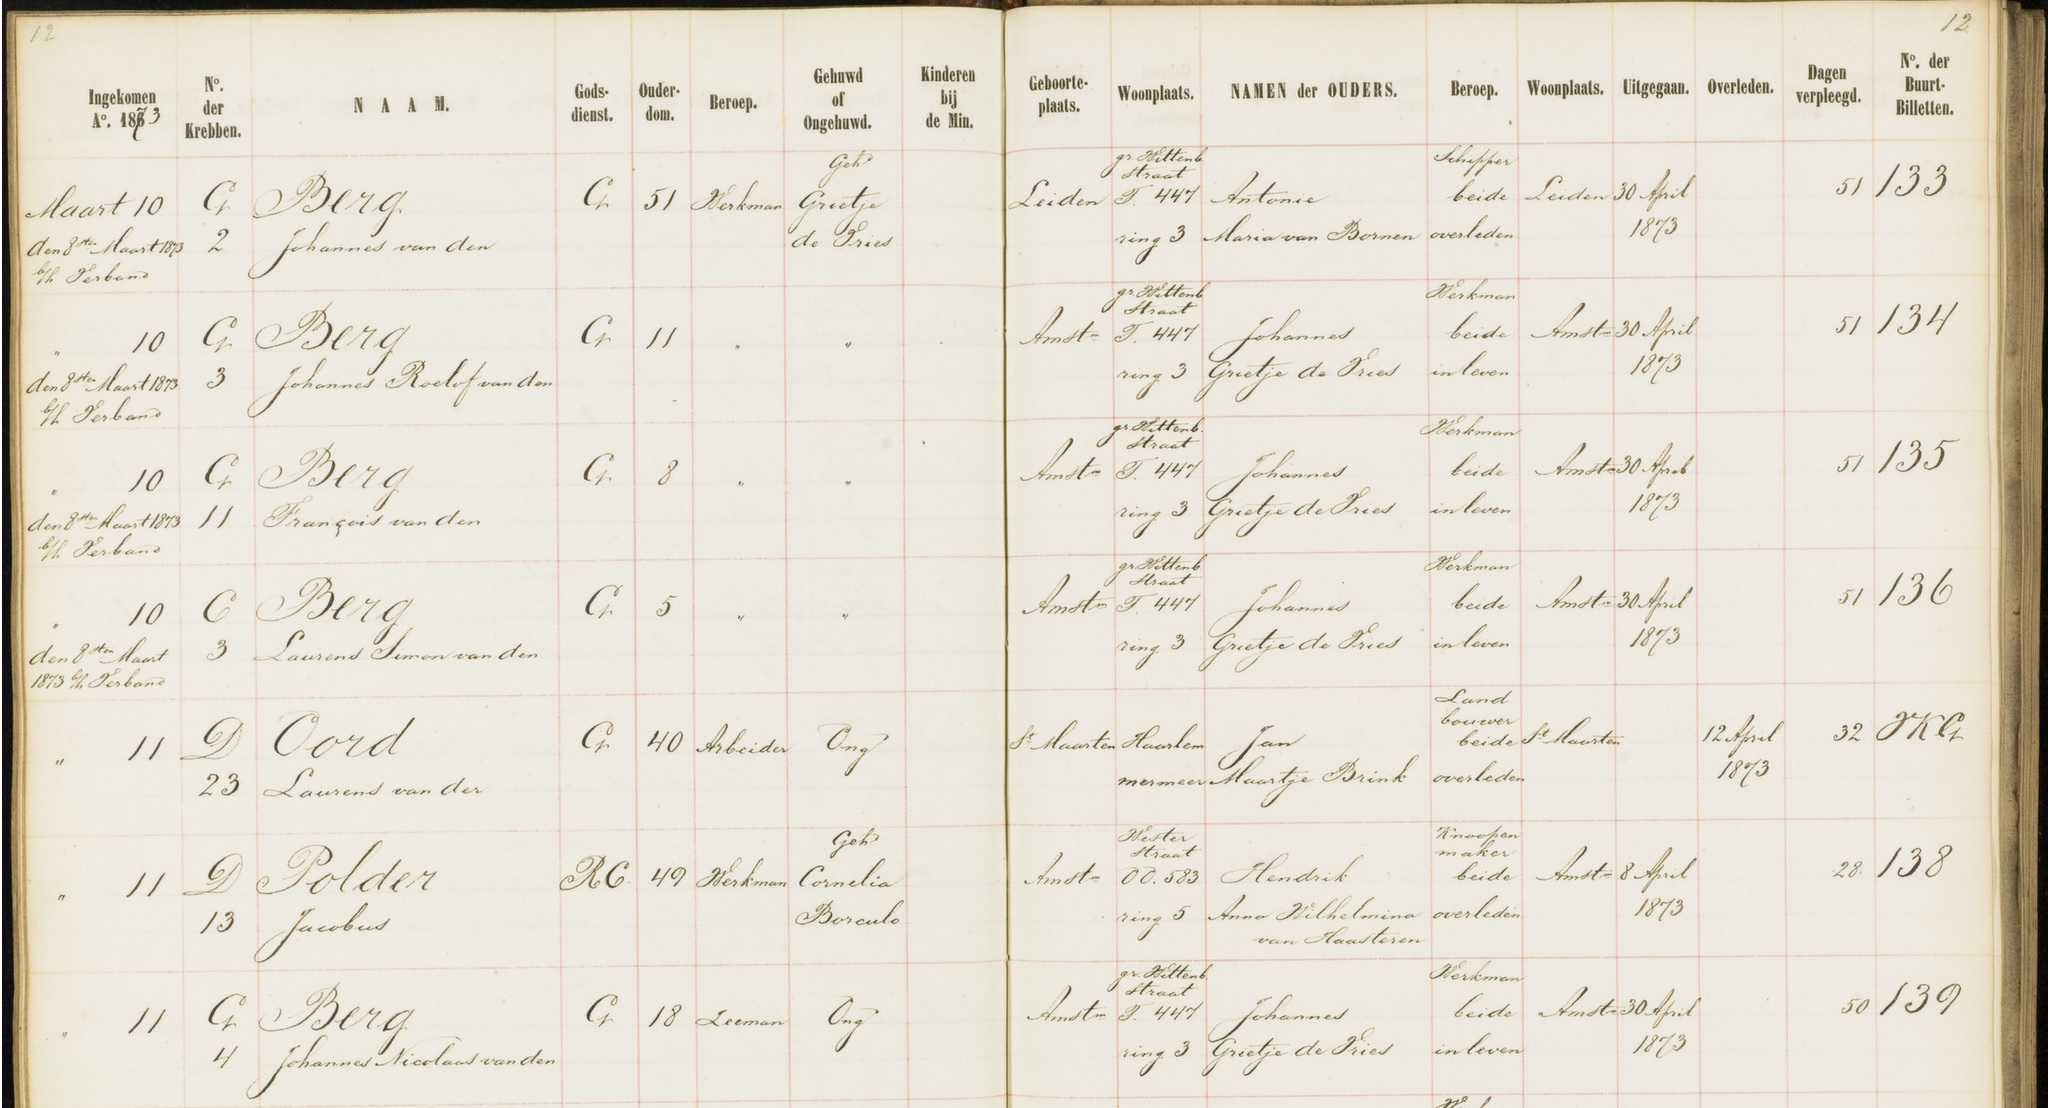 12 12
Ingekomen Aº. 1873 Nº. der Krebben. NAAM. Gods-dienst. Ouder-dom. Beroep. Gehuwd of Ongehuwd. Kinderen bij de Min. Geboorte-plaats. Woonplaats. NAMEN der OUDERS. Beroep. Woonplaats. Uitgegaan. Overleden. Dagen verpleegd. Nº. der Buurt-Billetten.
Gehd gr. Wittenb Straat Schipper
Maart 10 G Berg G 51 Werkman Grietje Leiden T. 447 Antonie beide Leiden 30 April 51 133
den 8sten Maart 1873 2 Johannes van den de Vries ring 3 Maria van Bornen overleden 1873
b/h Verband
gr. Wittenb Straat Werkman
" 10 G Berg G 11 " " Amstm T. 447 Johannes beide Amstm 30 April 51 134
den 8sten Maart 1873 3 Johannes Roelof van den ring 3 Grietje de Vries in leven 1873
b/h Verband
gr. Wittenb. Straat Werkman
" 10 G Berg G 8 " " Amstm T. 447 Johannes beide Amstm 30 April 51 135
den 8sten Maart 1873 11 François van den ring 3 Grietje de Vries in leven 1873
b/h Verband
gr. Wittenb Straat Werkman
" 10 C Berg G 5 " " Amstm T. 447 Johannes beide Amstm 30 April 51 136
den 8sten Maart 3 Laurens Simon van den ring 3 Grietje de Vries in leven 1873
1873 b/h Verband
Land bouwer
" 11 D Oord G 40 Arbeider Ong St Maarten Haarlem Jan beide St Maarten 12 April 32 VKG
23 Laurens van der mermeer Maartje Brink overleden 1873
Gehd Wester Straat Knoopen maker
" 11 D Polder RC 49 Werkman Cornelia Amstm OO. 583 Hendrik beide Amstm 8 April 28. 138
13 Jacobus Borculo ring 5 Anna Wilhelmina overleden 1873
van Haasteren
gr. Wittenb. Straat Werkman
" 11 G Berg G 18 Zeeman Ong Amstm T. 447 Johannes beide Amstm 30 April 50 139
4 Johannes Nicolaas van den ring 3 Grietje de Vries in leven 1873